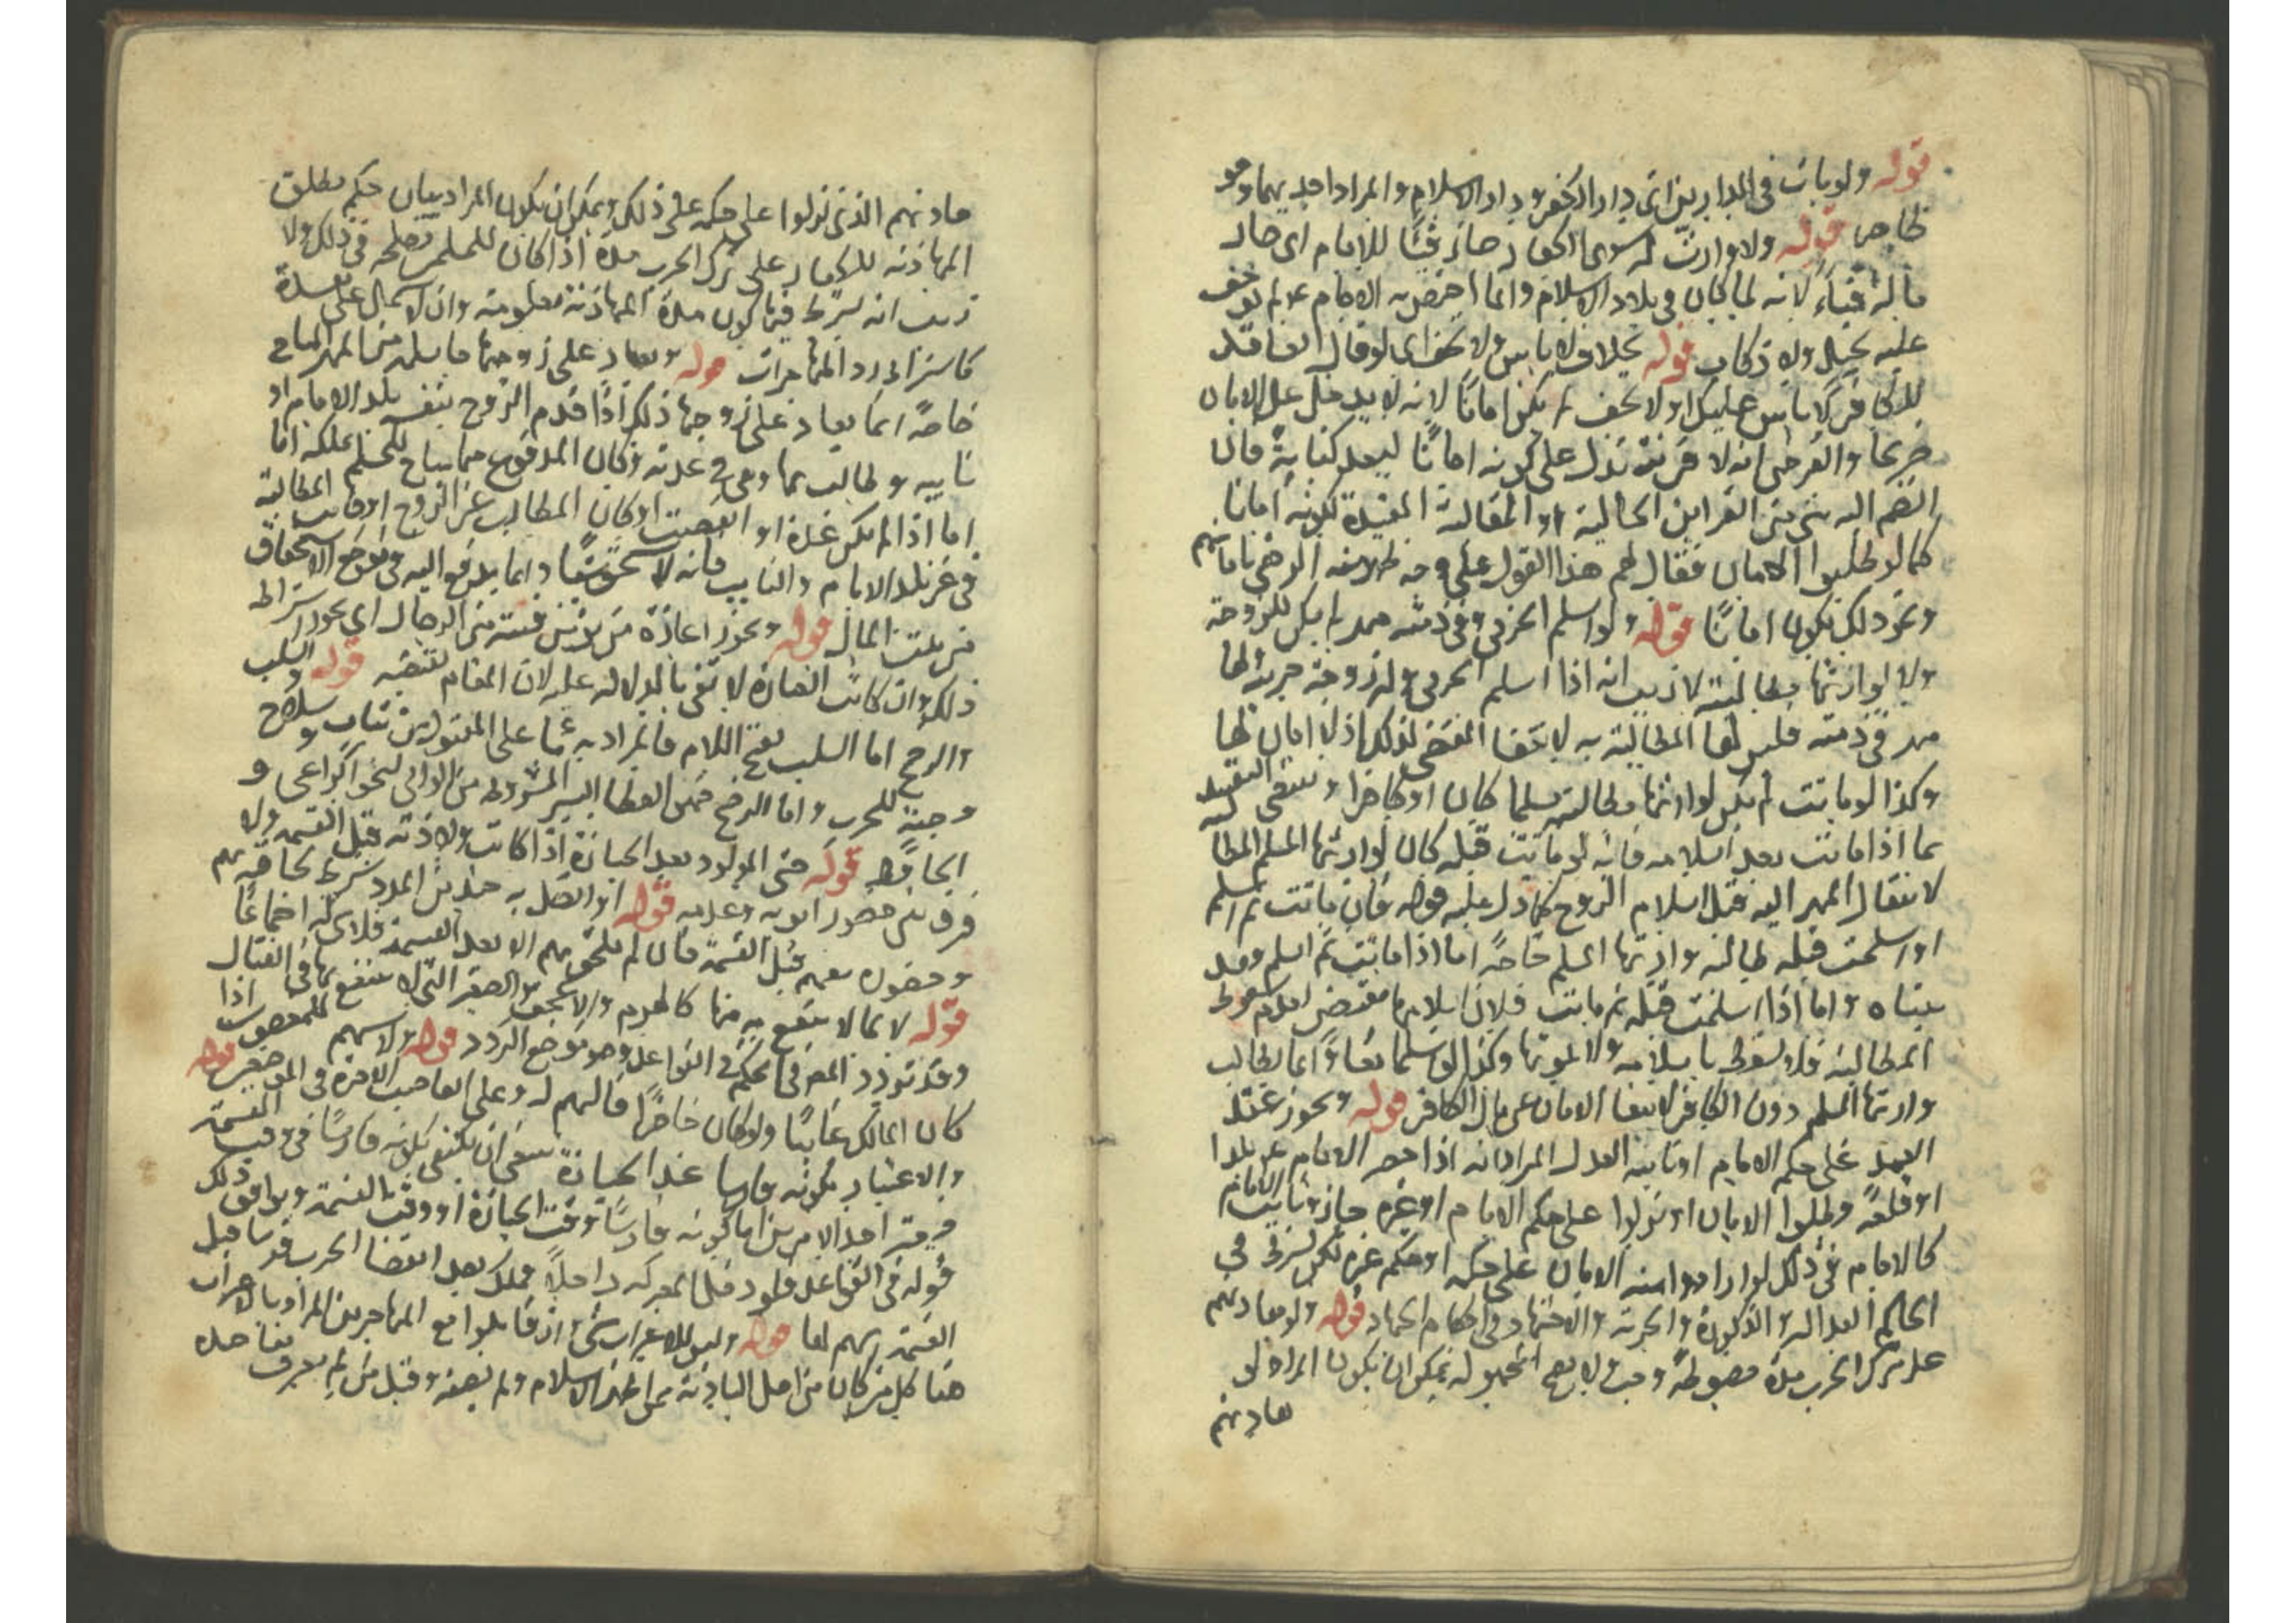 قوله ولو مات في الدارين اي دار الكفر ودار الاسلام والمراد احديهما وهو
ظاهر قوله ولا وارث له سوى الكفار صار فيئا للامام اي صار
ماله فيئا لانه لما كان في بلاد الاسلام وانما اختص به الامام ع لم يوجف
عليه بخيل ولا ركاب قوله بخلاف لا باس ولا تخف اي لو قال
للكافر لا باس عليك او لا تخف لم يكن امانا لانه لا يدخل على الامان
صريحا والفرض انه لا قرينة تدل على كونه امانا ليعد كناية فان
انضم اليه شي من القراين الحالية او المقالية المفيدة لكونه امانا
كما لو طلبوا الامان فقال لهم هذا القول على وجه الرضى بامانهم
ونحو ذلك يكون امانا قوله ولو اسلم الحربي وفي ذمته مهر لم يكن للزوجة
ولا لوارثها مطالبته لا ريب انه اذا اسلم الحربي وله زوجة حربية لها
مهر في ذمته فليس لها المطالبة به لانتفا المقتضي لذلك اذ لا امان لها
وكذا لو ماتت لم يكن لوارثها مطالبته مسلما كان او كافرا وينبغي التقييد
بما اذا ماتت بعد اسلامه فانه لو ماتت قبله كان لوارثها المسلم المطالبة
لانتقال المهر اليه قبل اسلام الزوج كما دل عليه قوله فان ماتت ثم اسلم
او اسلمت قبله طالبه وارثها المسلم خاصة اما اذا ماتت ثم اسلم وقد
بيناه واما اذا اسلمت قبله ثم ماتت فلان اسلامها مقتض لعدم سقوط
المطالبة فلا يسقط باسلامه ولا بموتها وكذا لو اسلما معا وانما يطالب
وارثها المسلم دون الكافر لانتفا الامان عن مال الكافر قوله ويجوز عقد
العهد على حكم الامام او نايبه العدل المراد انه اذا حصر الامام ع بلدا
او قلعة وطلبوا الامان او نزلوا على حكم الامام او غيره جاز ونايب الامام
كالامام في ذلك لو ارادوا منه الامان على حكمه او حكم غيره لكن يشترط في
الحاكم العدالة والذكورة والحرية والاجتهاد في احكام الجهاد قوله ولو هادنهم
على ترك الحرب مدة مضبوطة وجب ولا يصح المجهوله يمكن ان يكون المراد لو
هادنهم
هادنهم الذين نزلوا على حكمه على ذلك ويمكن ان يكون المراد بيان حكم مطلق
المهادنة للكفار على ترك الحرب مدة اذا كان للمسلمين مصلحة في ذلك ولا
ريب انه يشترط فيها كون مدة المهادنة معلومة وان لا تشتمل على مفسدة
كاشتراط رد المهاجرات قوله ويعاد على زوجها ما سلمه من المهر المباح
خاصة انما يعاد على زوجها ذلك اذا قدم الزوج بنفسه بلد الامام او
نايبه وطالب بها وهي في عدته وكان المدفوع مما يباح للمسلم تملكه اما
اما اذا لم يكن عدة او انقضت او كان المطالب غير الزوج او كانت المطالبة
في غير بلد الامام والنايب فانه لا يستحق شيئا وانما يدفع اليه في موضع الاستحقاق
من بيت المال قوله ويجوز اعادة من يؤمن فتنته من الرجال اي يجوز اشتراط
ذلك وان كانت العبارة لا تفي بالدلالة عليه لان المقام يقتضيه قوله والسلب
والرضخ اما السلب بفتح اللام فالمراد به ما على المقتول من ثياب وسلاح
وجنة للحرب واما الرضخ فهو العطا اليسير المشروط من الوالي لنحو الراعي و
الحافظ قوله حتى المولود بعد الحيازة اذا كانت ولادته قبل القسمة ولا
فرق بين حضور ابويه وعدمه قوله او اتصل به حينئذ من المدد شرط لحاقه بهم
وحضوره معهم قبل القسمة فان لم يلحق بهم الا بعد القسمة فلا شركة اجماعا
قوله لا بما لا ينتفع به منها كالهرم والاعجف والصغير الذي لا ينتفع بها في القتال
وقد تردد المص في حكم في القواعد وهو موضع التردد قوله ولا يسهم للمغصوب اذا
كان المالك غايبا ولو كان حاضرا فالسهم له وعلى الغاصب الاجرة في الموضعين قوله
والاعتبار بكونه فارسا عند الحيازة ينبغي ان يكتفى بكونه فارسا في وقت القسمة
فيعتبر احد الامرين اما كونه فارسا وقت الحيازة او وقت القسمة ويوافق ذلك
قوله في القواعد فلو دخل المعركة راجلا فملك بعد انقضا الحرب فرسا قبل
القسمة اسهم لها قوله وليس للاعراب شيء وان قاتلوا مع المهاجرين المراد بالاعراب
هنا كل من كان من اهل البادية ممن اظهر الاسلام ولم يصفه وقيل من لم يعرف مقاصده